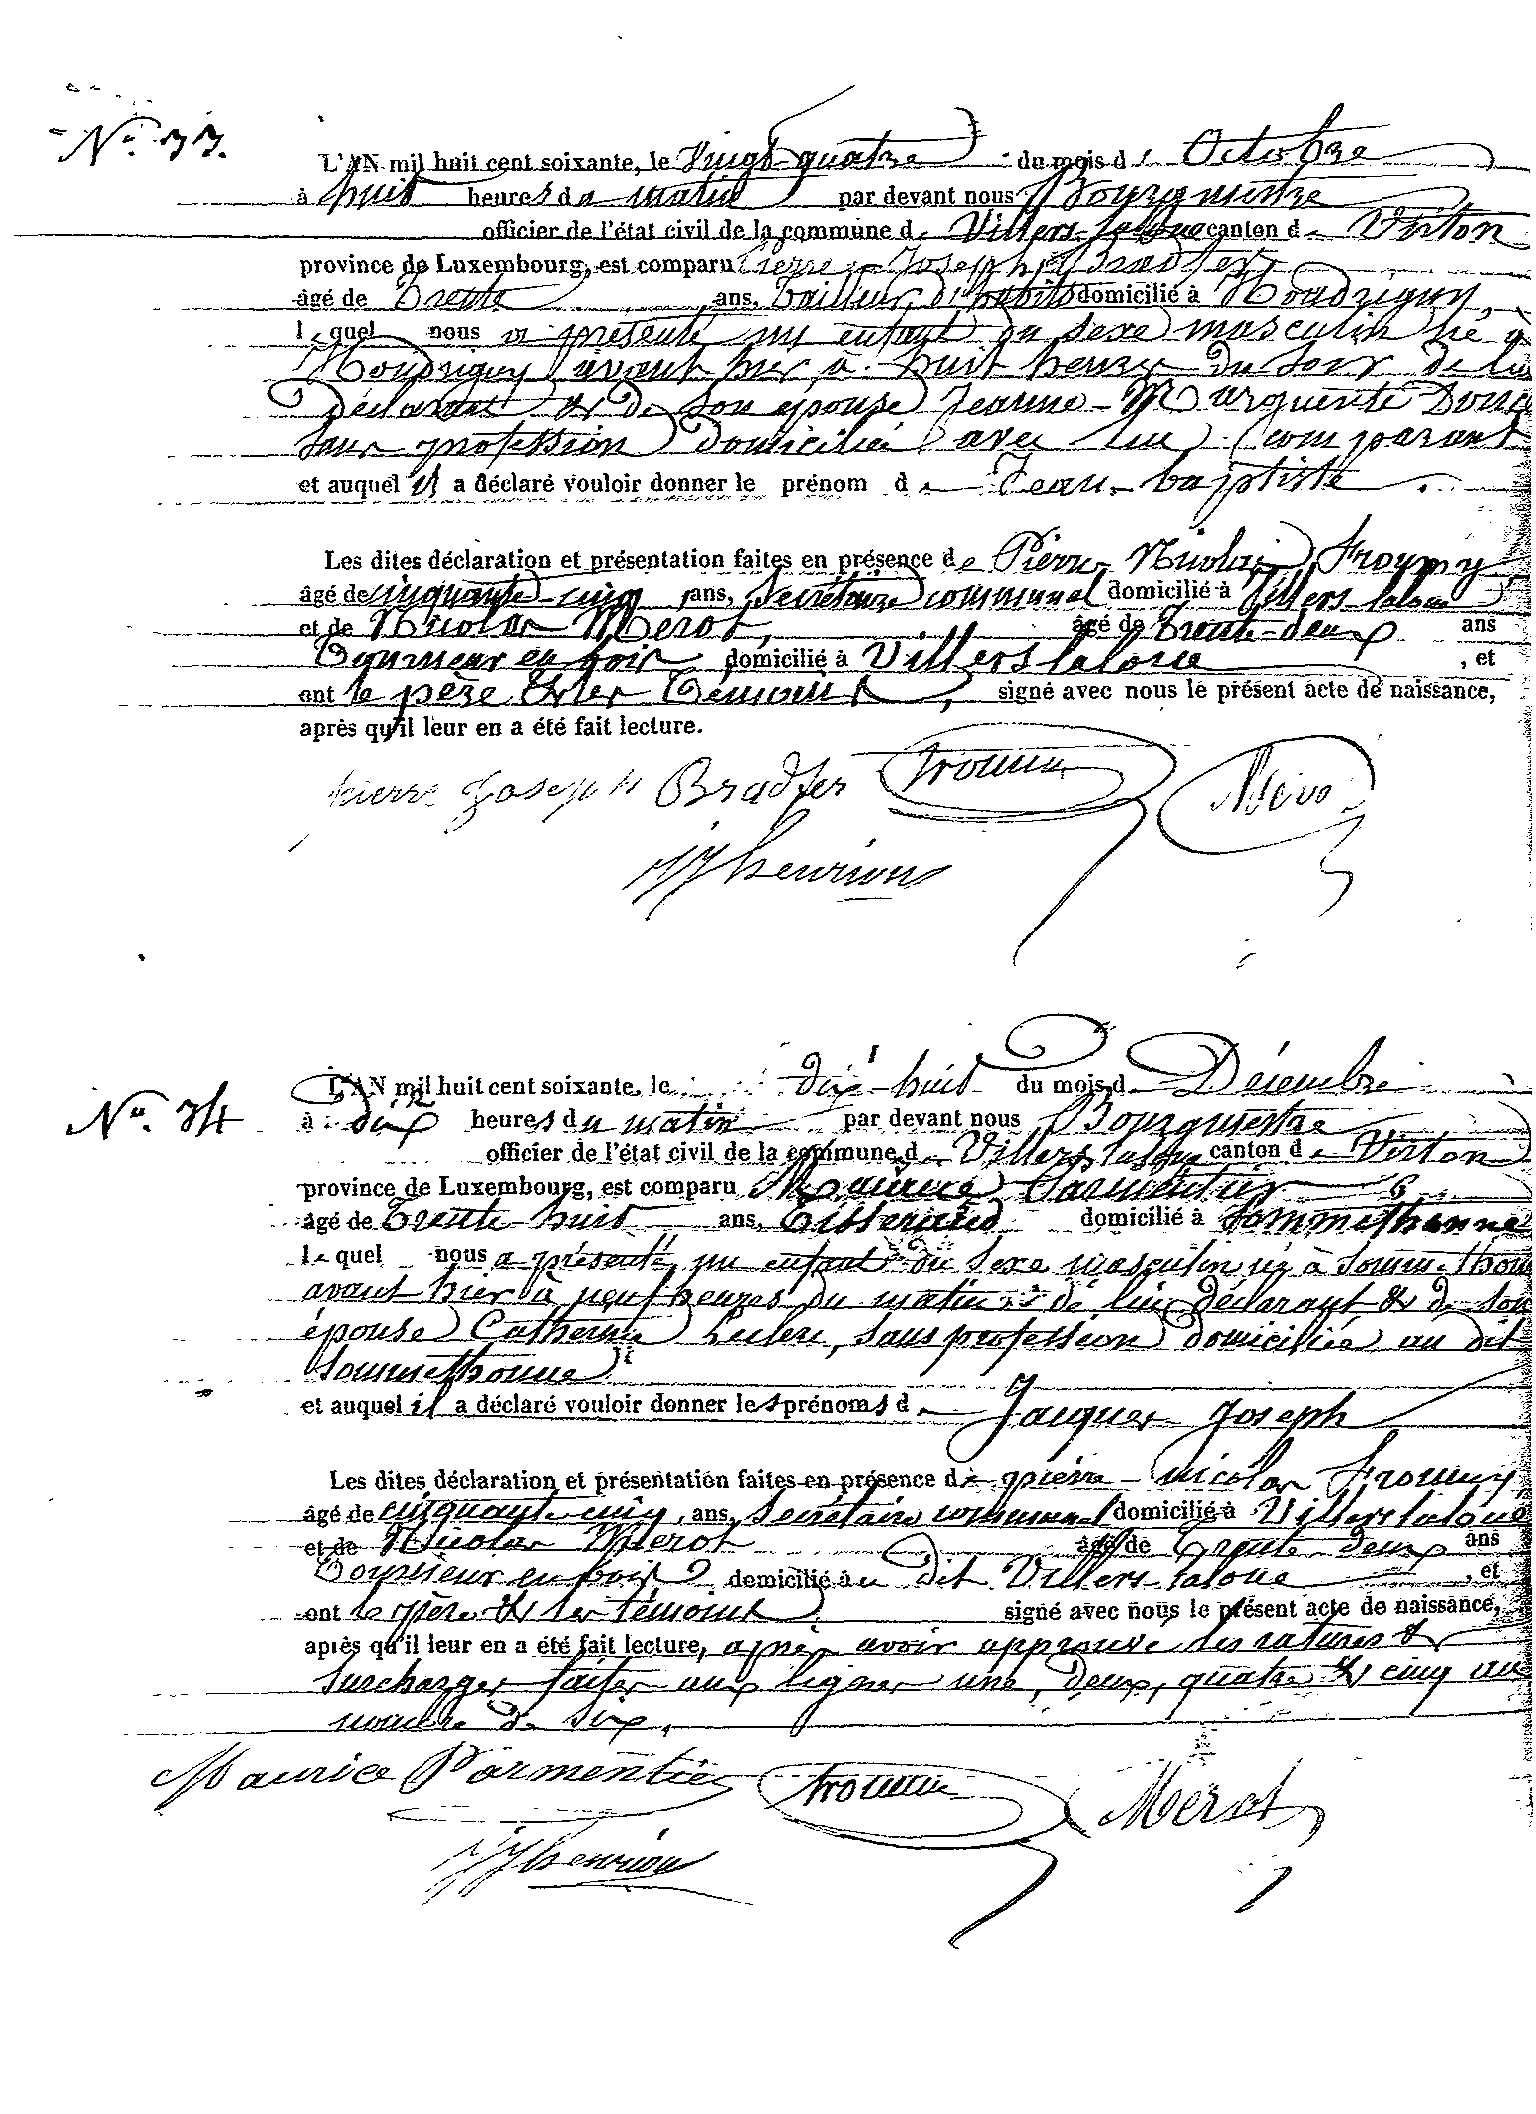 No. 33.
L'AN mil huit cent soixante, le Vingt-quatre du mois d'Octobre
à huit heures du matin par devant nous Bourgmestre
officier de l'état civil de la commune de Villers-laloue canton de Virton
province de Luxembourg, est comparu Pierre-Joseph Bradfer
âgé de Trente ans, Tailleur d'habits domicilié à Houdrigny,
lequel nous a présenté un enfant du sexe masculin né à
Houdrigny avant hier à huit heures du soir de lui
Déclarant & de son épouse Jeanne-Marguerite
sans profession domiciliée avec lui comparant
et auquel il a déclaré vouloir donner le prénom de Jean-baptiste.
Les dites déclaration et présentation faites en présence de Pierre Nicolas Froumy
âgé de cinquante-cinq ans, Secrétaire communal domicilié à Villers-laloue
et de Nicolas Merot, âgé de Trente-deux ans
Tourneur en bois domicilié à Villers laloue, et
ont le père & les Témoins, signé avec nous le présent acte de naissance,
après qu'il leur en a été fait lecture.
Pierre Joseph Bradfer Froumy Mero
JJ henrion
No. 34
L'AN mil huit cent soixante, le dix-huit du mois de Décembre
à dix heures du matin par devant nous Bourgmestre
officier de l'état civil de la commune de Villers laloue canton de Virton
province de Luxembourg, est comparu Maurice Parmentier
âgé de Trente-huit ans, Tisserand domicilié à Sommethonne
lequel nous a présenté un enfant du sexe masculin né à Sommethonne
avant hier à neuf heures du matin de lui déclarant & de son
épouse Catherine Leclerc, sans profession domiciliée au dit
Sommethonne
et auquel il a déclaré vouloir donner les prénoms de Jacques Joseph
Les dites déclaration et présentation faites en présence de pierre-nicolas Froumy
âgé de cinquante-cinq ans, Secrétaire communal domicilié à Villers laloue
et de Nicolas Merot âgé de Trente-deux ans
Tourneur en bois domicilié au dit Villers-laloue, et
ont le père & les témoins signé avec nous le présent acte de naissance,
après qu'il leur en a été fait lecture, après avoir approuvé les ratures &
surcharges faites aux lignes une, deux, quatre & cinq au
nombre de six.
Maurice Parmentier Froumy Merot
JJ henrion